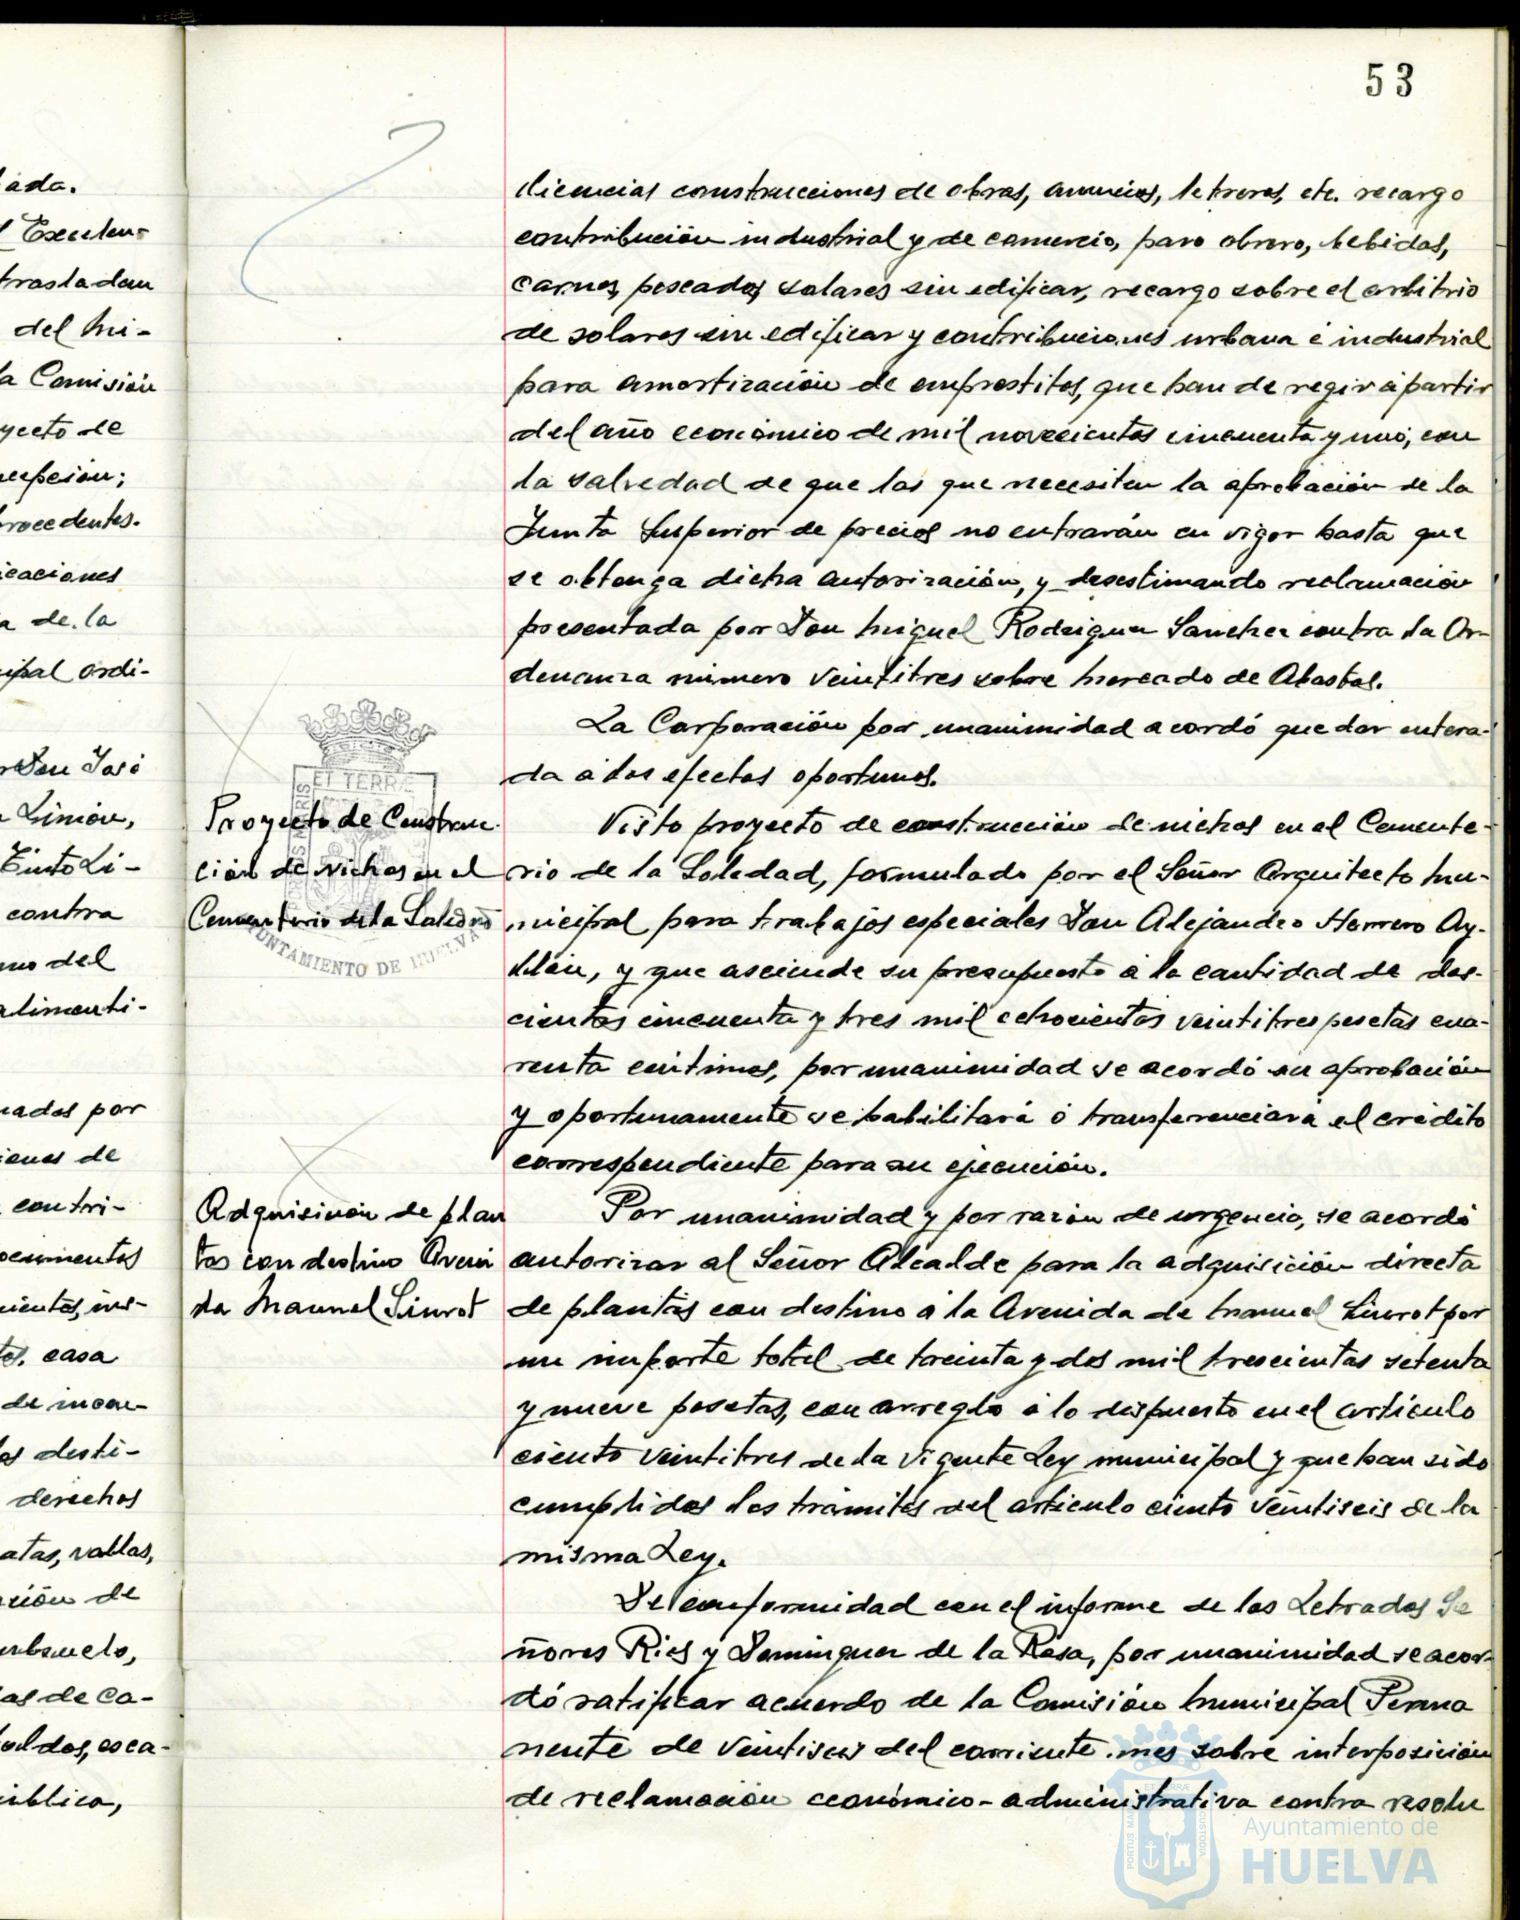 53
licencias construcciones de obras, anuncios, letreros, etc. recargo
contribución industrial y de comercio, paro obrero, bebidas,
carnes, pescados, solares sin edificar, recargo sobre el arbitrio
de solares sin edificar y contribuciones urbana é industrial
para amortización de emprestitos, que han de regir á partir
del año económico de mil novecientos cincuenta y uno; con
la salvedad de que las que necesiten la aprobación de la
Junta Superior de precios no entrarán en vigor hasta que
se obtenga dicha autorización, y desestimando reclamación
presentada por Don Miguel Rodriguez Sanchez contra la Or-
denanza número veintitres sobre Mercado de Abastos.
La Corporación por unanimidad acordó quedar entera-
da á los efectos oportunos.
Proyecto de Construc-
ción de nichos en el
Cementerio de la Soledad
Visto proyecto de construcción de nichos en el Cemente-
rio de la Soledad, formulado por el Señor Arquitecto Mu-
nicipal para trabajos especiales Don Alejandro Herrero Ay-
llón, y que asciende su presupuesto á la cantidad de dos-
cientas cincuenta y tres mil ochocientas veintitres pesetas cua-
renta céntimos, por unanimidad se acordó su aprobación
y oportunamente se habilitará ó transferenciará el crédito
correspondiente para su ejecución.
Adquisición de plan
tas con destino Aveni
da Manuel Siurot
Por unanimidad y por razón de urgencia, se acordó
autorizar al Señor Alcalde para la adquisición directa
de plantas con destino á la Avenida de Manuel Siurot por
un importe total de treinta y dos mil trescientas setenta
y nueve pesetas, con arreglo á lo dispuesto en el artículo
ciento veintitres de la vigente Ley municipal y que han sido
cumplidos los trámites del artículo ciento veintiseis de la
misma Ley.
De conformidad con el informe de los Letrados Se
ñores Rios y Dominguez de la Rosa, por unanimidad se acor-
dó ratificar acuerdo de la Comisión Municipal Perma
nente de veintiseis del corriente mes sobre interposición
de reclamación económico-administrativa contra resolu
ET TERRÆ
AYUNTAMIENTO DE HUELVA
Ayuntamiento de
HUELVA
ada.
Excelen-
trasladan
del Mi-
a Comisión
yecto de
epción;
procedentes.
icaciones
a de la
ipal ordi-
Don José
Limón,
Tinto Li-
contra
mo del
alimenti-
nados por
iones de
contri-
ocumentos
mientos, ins-
casa
de incen-
os desti-
derechos
atas, vallas,
ción de
subsuelo,
as de ca-
toldos, esca-
ública,